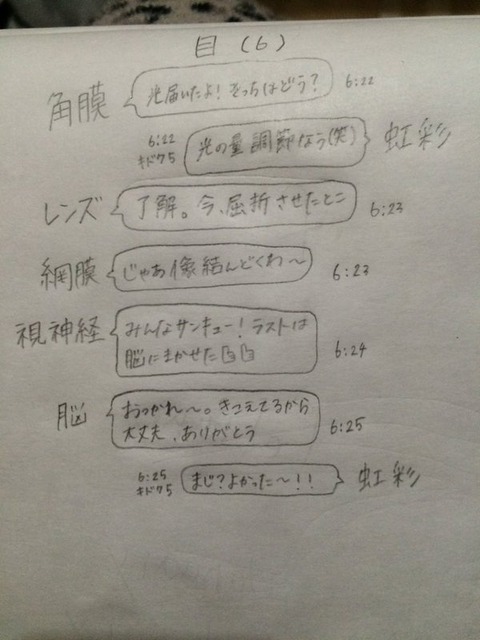 目(6)
角膜
光届いたよ!そっちはどう?
6:22
6:22
キドク5
光の量調節なう(笑)
虹彩
レンズ
了解。今、屈折させたとこ
6:23
網膜
じゃあ像結んどくわ〜
6:23
視神経
みんなサンキュー!ラストは
脳にまかせた
6:24
脳
おつかれ〜。きこえてるから
大丈夫、ありがとう
6:25
6:25
キドク5
まじ?よかった〜!!
虹彩